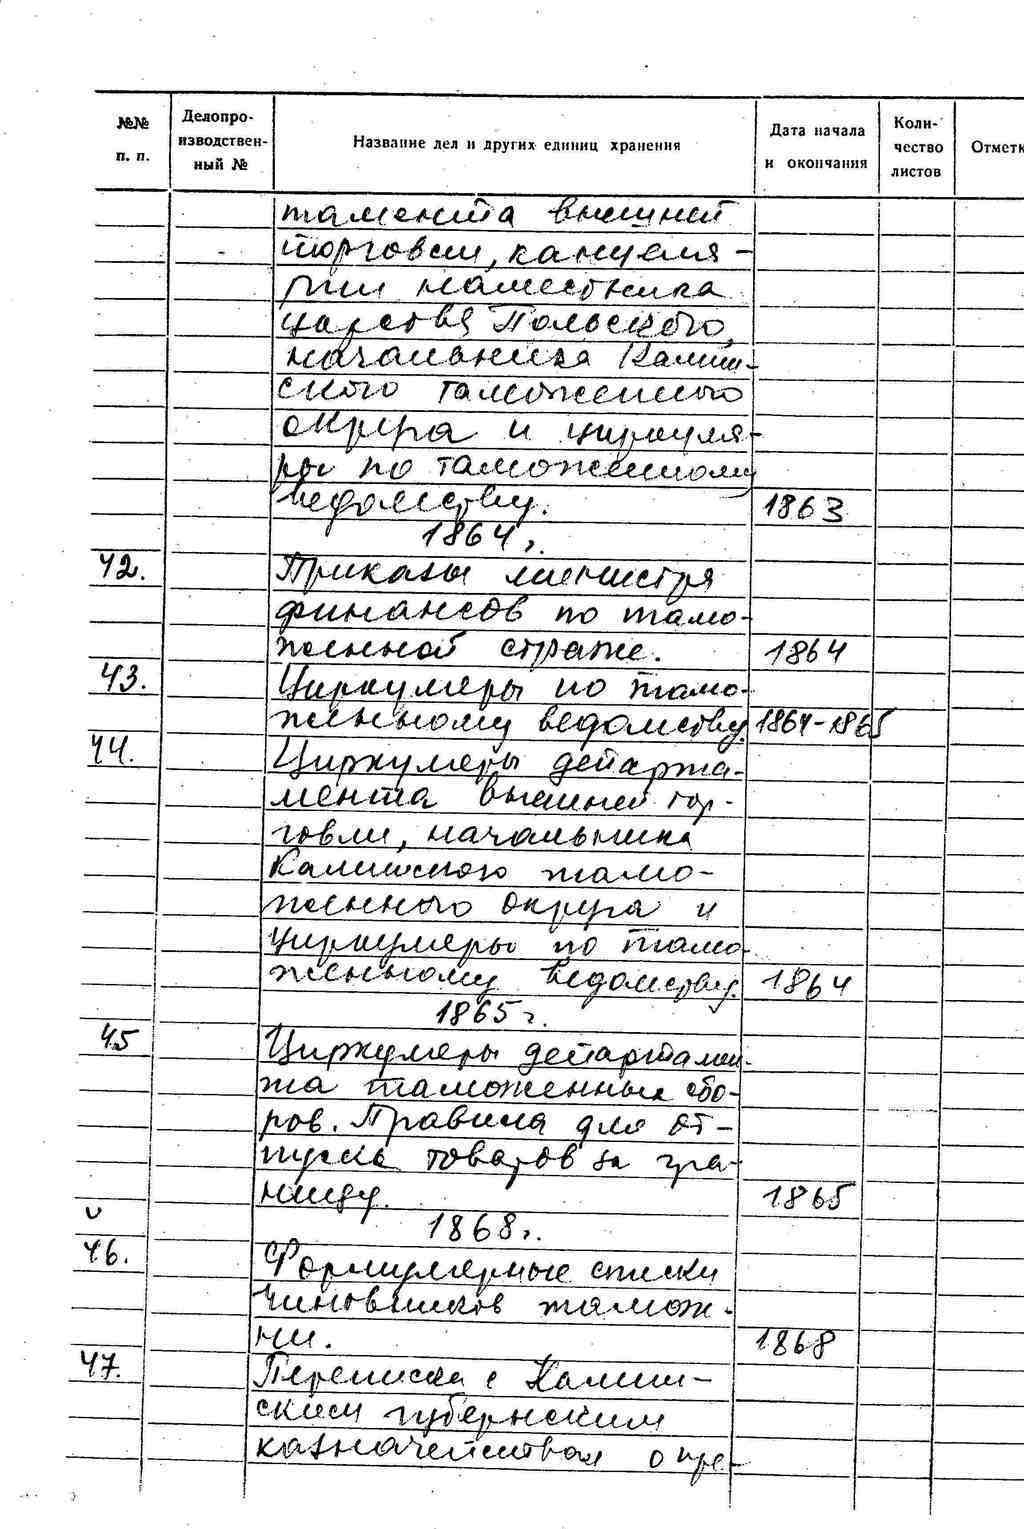 №№ п. п. Делопро-изводствен-ный № Название дел и других единиц хранения Дата начала и окончания Коли-чество листов Отметк
тамента внешней
торговли, канцеля-
рии наместника
царства Польского,
начальника Калиш-
ского таможенного
округа и циркуля-
ры по таможенному
ведомству. 1863
1864 г.
42. Приказы министра
финансов по тамо-
женной страже. 1864
43. Циркуляры по тамо-
женному ведомству. 1864-1865
44. Циркуляры департа-
мента внешней тор-
говли, начальника
Калишского тамо-
женного округа и
циркуляры по тамо-
женному ведомству. 1864
1865 г.
45 Циркуляры департамен-
та таможенных сбо-
ров. Правила для от-
пуска товаров за гра-
ницу. 1865
1868 г.
46. Формулярные списки
чиновников тамож-
ни. 1868
47. Переписка с Калиш-
ским губернским
казначейством о пре-